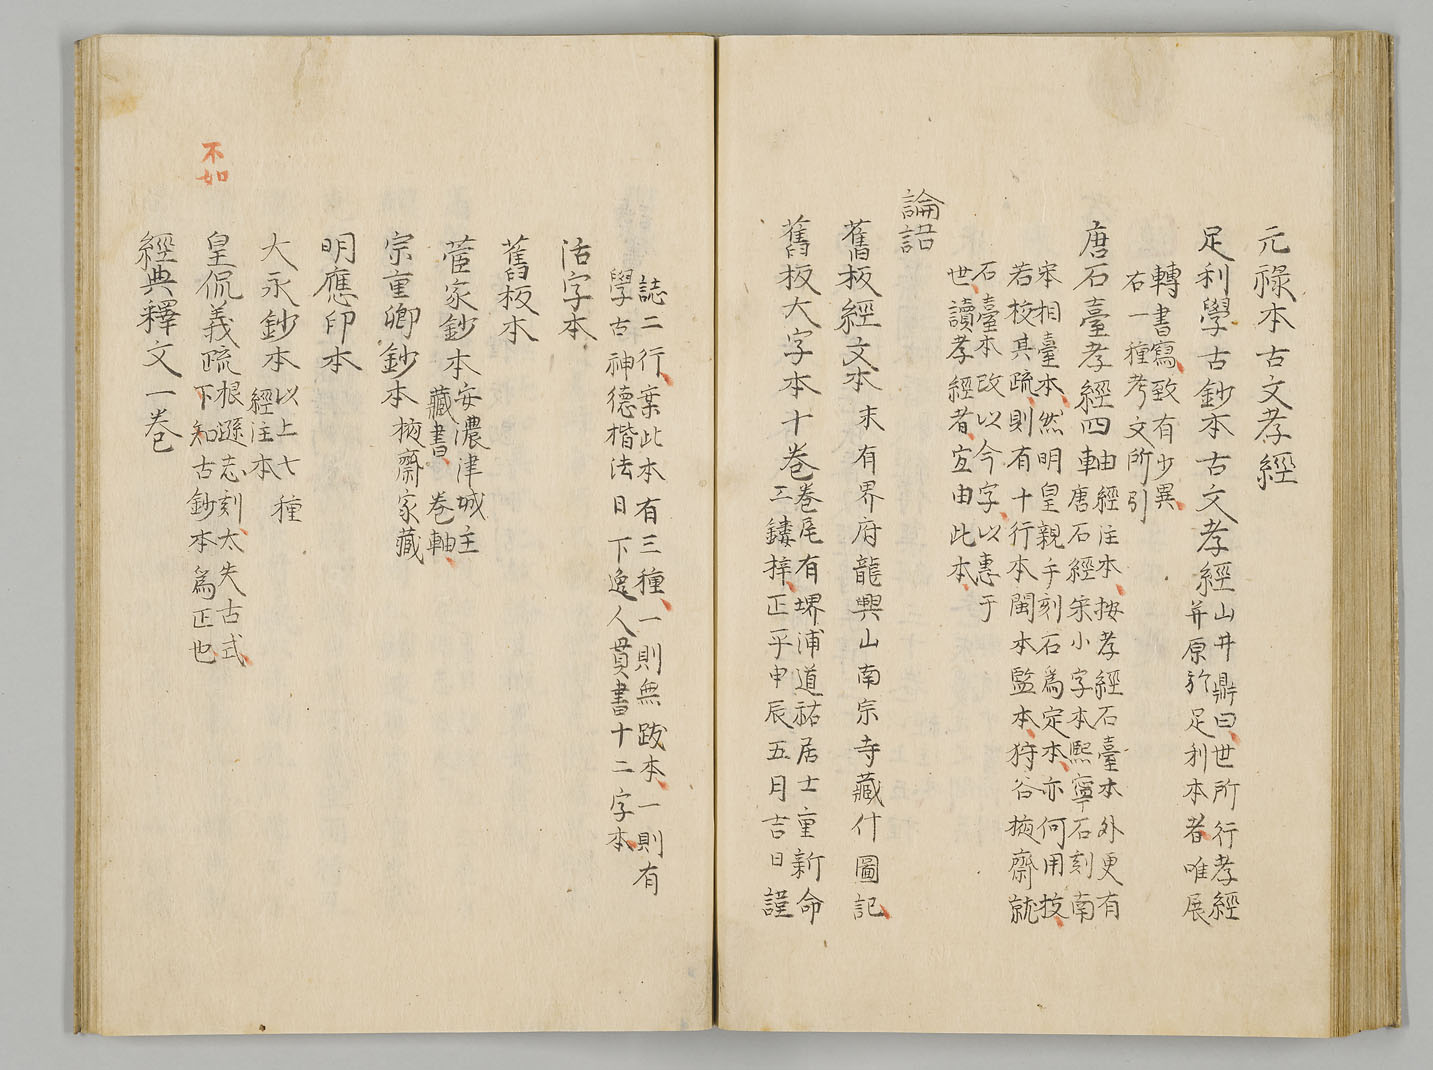 元祿本古文孝經
足利學古鈔本古文孝經山井鼎曰世所行孝經
并原於足利本者唯展
轉書寫致有少異
右一種考文所引
唐石臺孝經四軸經注本按孝經石臺本外更有
唐石經宋小字本熙寧石刻南
宋相臺本然明皇親手刻石爲定本亦何用技
若校其疏則有十行本閩本監本狩谷掖齋就
石臺本改以今字以惠于
世讀孝經者宜由此本
論語
舊板經文本末有界府龍興山南宗寺藏什圖記
舊板大字本十卷卷尾有堺浦道祐居士重新命
工鏤梓正平甲辰五月吉日謹
誌二行葉此本有三種一則無跋本一則有
學古神德楷法日下逸人貫書十二字本
活字本
舊板本
菅家鈔本安濃津城主
藏書卷軸
宗重卿鈔本掖齋家藏
明應印本
大永鈔本以上七種
經注本
不如
皇侃義疏根遜志刻太失古式
下知古鈔本爲正也
經典釋文一卷